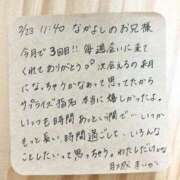 2/23 11:40 なかよしのお兄様
今月で3回目!! 毎週会いに来て
くれてありがとう 次会えるの来月
になっちゃうかなぁって思ってたから
サプライズ指名 本当に嬉しかったよ。
いっつも時間あっという間で…いつか
もっと長い時間過ごして、いろんな
ことしたいって思っちゃう。
まいか